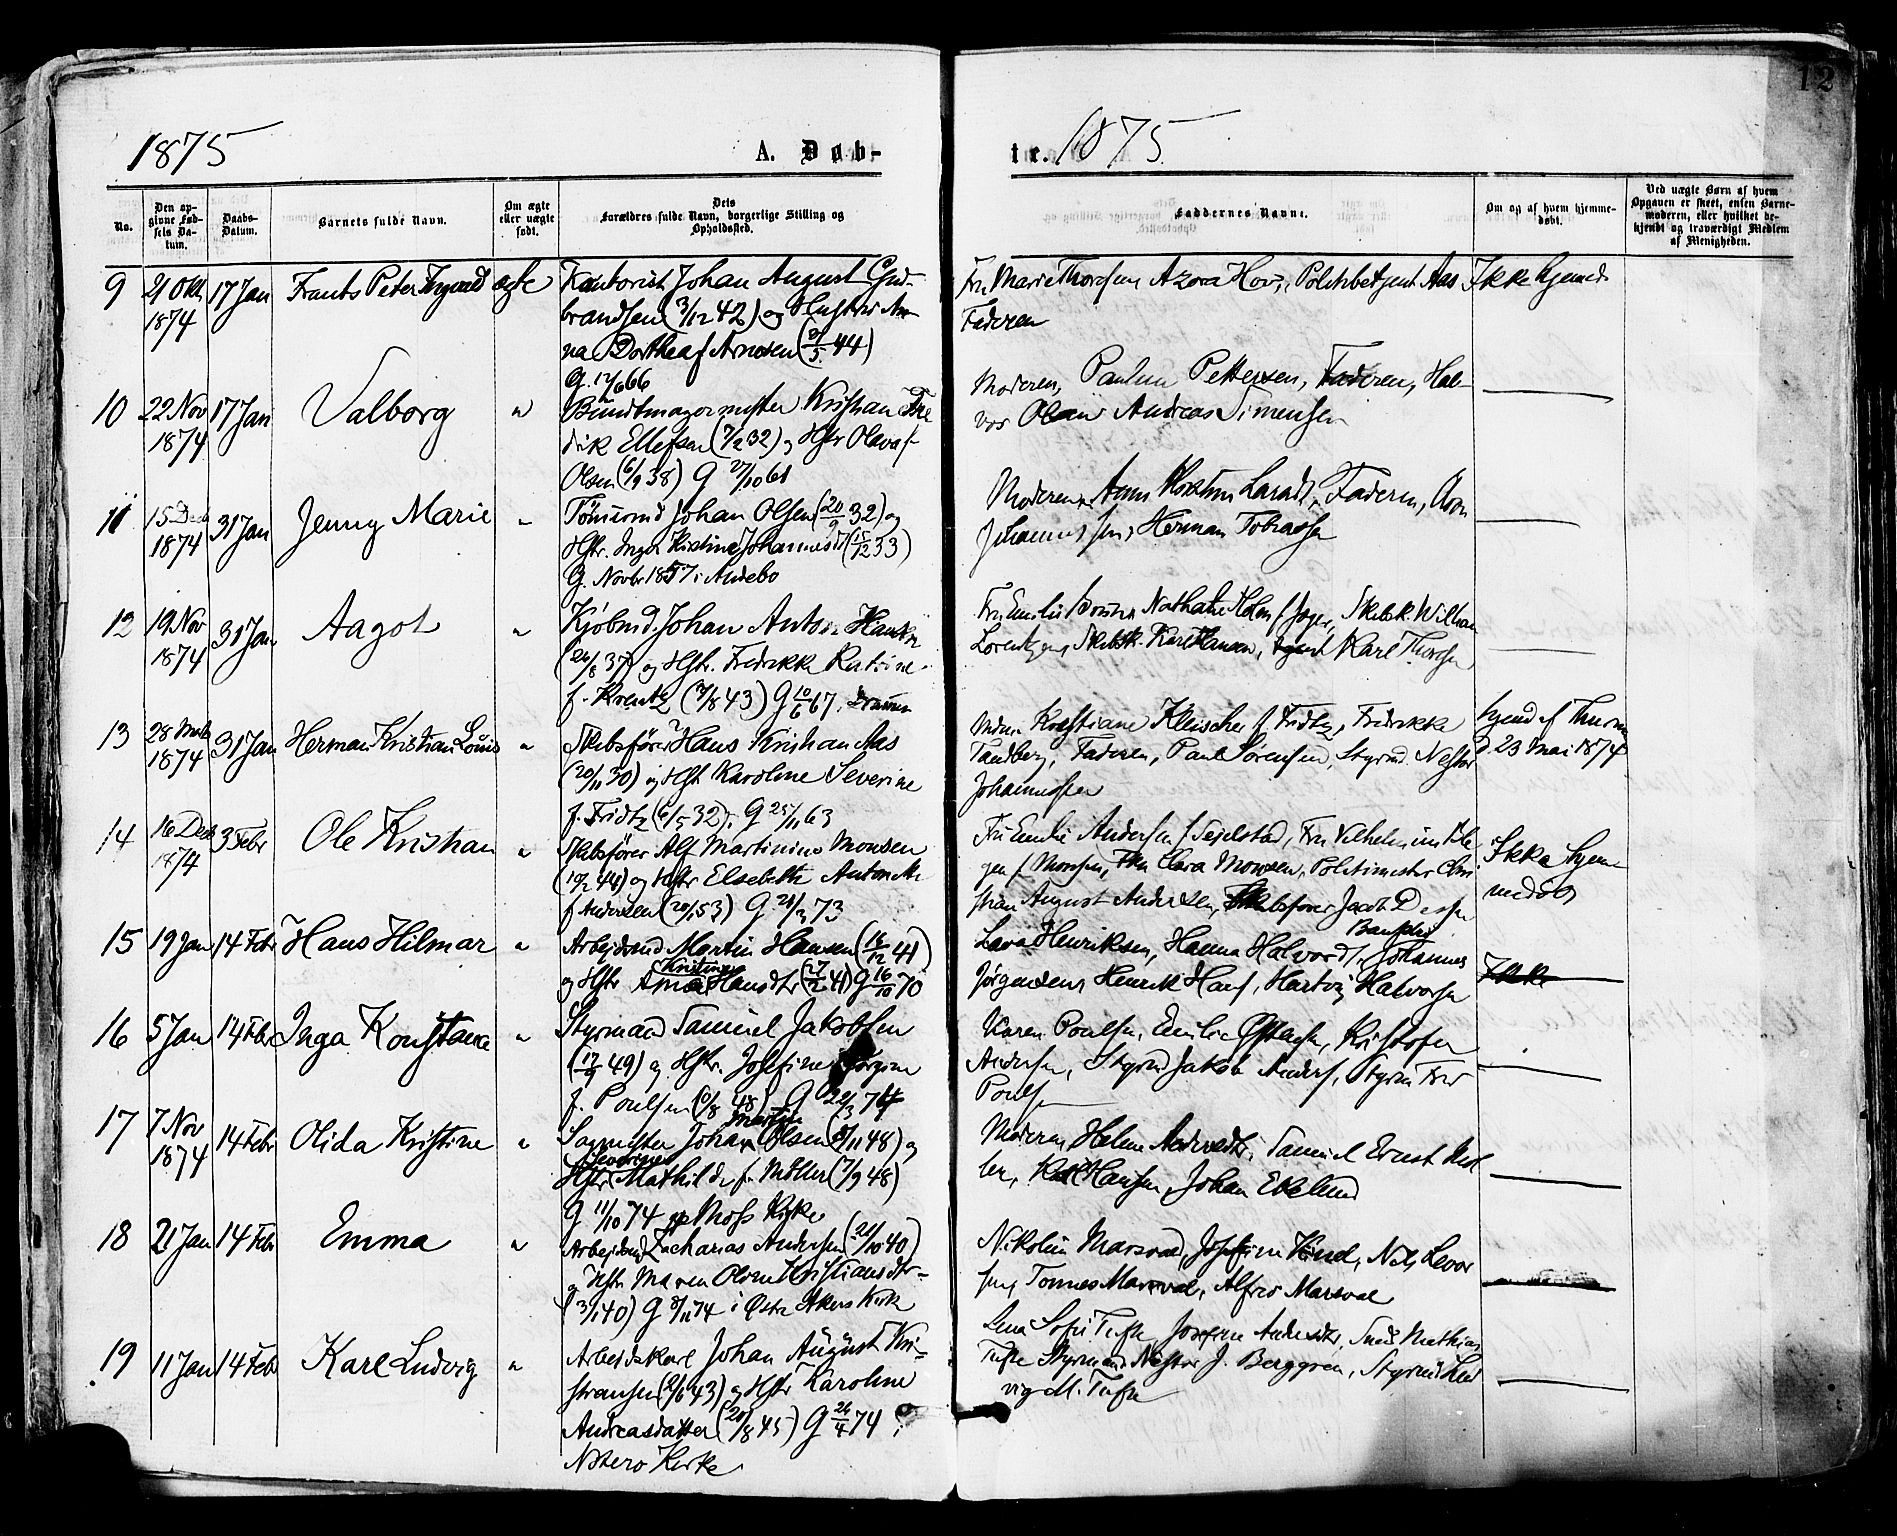 12
1875
A. Døb-
tr. 1875
No.
Den op-
givne Fød-
sels Da-
tum.
Daabs-
Datum.
Barnets fulde Navn.
Om ægte
eller uægte
født.
Dets
Forældres fulde Navn, borgerlige Stilling og
Opholdssted.
Faddernes Navne.
Om og af hvem hjemme-
døbt.
Ved uægte Børn af hvem
Opgaven er skeet, ensten Barne-
moderen, eller hvilket be-
kjendt og troværdigt Medlem
af Menigheden.
9 21 Okt 1874 17 Jan Frants Peter ægte
Kontorist Johan August Gud-
brandsen (3/12 42) og Hustru An-
na Dorthea f Arnesen 44)
G. 66
Fru Marie Thoresen Azora Politibetjent Aas
Faderen
Ikke hjemd
10 22 Nov 1874 17 Jan Valborg "
Bundtmagermester Kristian Fre
drik Ellefsen (7/2 32) og Hstr Olava f
Olsen (6/9 38) G 27/10 61
Moderen, Pettersen, Faderen, Hal-
vor Olsen Andreas Simensen
11 15 Dec 1874 31 Jan Jenny Marie "
Tømmermd Johan Olsen (20/9 32) og
Hstr. Inger Kirstine Johannesd (15/12 33)
G. Novbr 1857 i Andebo
Moderen, Faderen, Aron
Johannessen, Herman Tobiassen
12 19 Nov 1874 31 Jan Aagot "
Kjøbmd. Johan Anton Hansen
(26/8 37) og Hstr. Fredrikke Katrine
f. (7/8 43) G 10/6 67.
Fru Emilie Nathalie Holm f Skibsk. Wilhan
Lorentzen, Skibsk. Karl Hansen, Agent Karl Thoresen
13 28 1874 31 Jan Herman Kristian Louis "
Skibsfører Hans Kristian Aas
(20/11 30) og Hstr Karoline Severine
f. Fridtz (6/5 32). G 25/11 63
Kristiane Kleischer f Fridtz, Fredrikke
Tandberg, Faderen, Paul Sørensen, Styrmd. Nestor
Johannessen
hjemd af
d. 23 Mai 1874
14 16 Dec 1874 3 Febr Ole Kristian "
Skibsfører Alf Martinius Monsen
(10/2 44) og Hstr Elsebeth Antonette
f Andersen (20/1 53) G 21/3 73
Fru Emilie Andersen f Sejelstad, Fru Vilhelmine
gen f Monsen, Frk Clara Monsen, Politimester Chri
stian August Andersen, Skibsfører Jacob
Ikke hjem
medøb
15 19 Jan 14 Febr Hans Hilmar "
Arbejdsmd Martin Hansen (16/12 41)
Kristine
og Hstr Anne Hansdtr (27/2 41) G 16/10 70
Lava Henriksen, Hanna Halvordt, Johannes
Jørgensen, Henrik Hans, Hartvig Halvorsen
Ikke
16 5 Jan 14 Febr Inga Konstance "
Styrmand Samuel Jakobsen
(17/9 49) og Hstr. Josefine Jørgine
f. Poulsen (9/8 48) G 22/3 74
Karen Poulsen, Emilie Kristofer
Andersen, Styrmd Jakob Anders, Styrm
Pouls
17 7 Nov 1874 14 Febr Olida Kristine "
Martin
Sagmester Johan Olsen (8/11 48) og
Severine
Hstr Mathilde f. Møller (7/9 48)
G 11/10 74 Moss Kirke
Moderen, Helene Andersdtr, Samuel Ernst Møl
ler, Karl Hansen, Johan Ekelund
18 21 Jan 14 Febr Emma "
Arbejdsmd Zacharias Andersen (21/10 40)
og Hstr Maren Oline Kristiansdtr
(3/1 40) G 8/11 74 i Østre Akers Kirke
Nikoline Marsval, Josefine Nils Levor
sen, Tønnes Marsval, Alfred Marsval
19 11 Jan 14 Febr Karl Ludvig "
Arbejdskarl Johan August Kri-
stiansen (9/6 43) og Hstr Karoline
Andreasdatter (29/8 45) G 26/4 74 i
Nøterø Kirke
Lena Sofie Tufte, Josefine Andersdtr, Smed Mathias
Tufte Styrmand Nestor J. Berggren, Styrmd Lud
vig M. Tufte